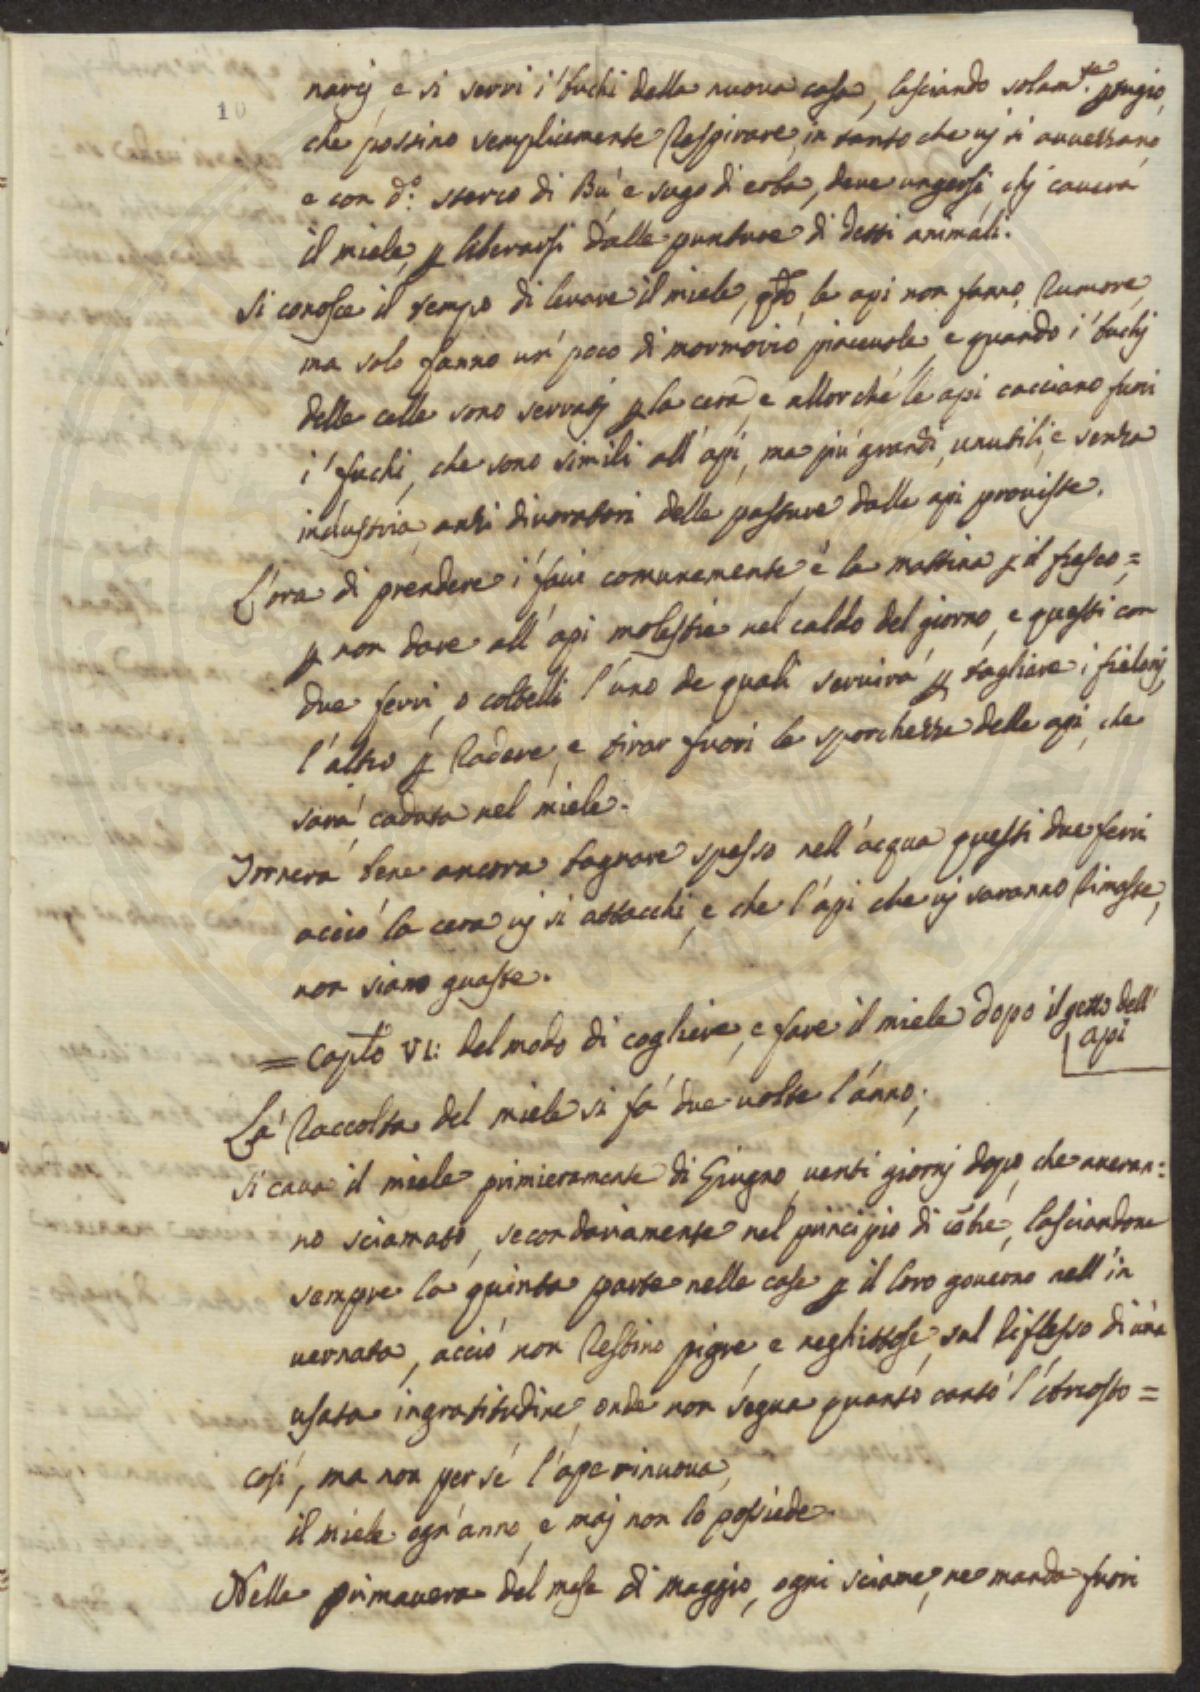 10
narij e si serri i' buchi della nuova casa, lasciando solam.te p
che possino semplicemente Respirare, in tanto che vj si avvezzano
e con d.o sterco di Bu' e sugo di erba, deve ungersi chj caverà
il miele, p liberarsi dalle punture di detti animali.
Si conosce il tempo di levare il miele, qdo le api non fanno Rumore,
ma solo fanno un' poco di mormorio piacevole, e quando i' buchj
delle celle sono serratj p la cera, e allorché le api cacciano fuori
i' fuchi, che sono simili all' api, ma più grandi, inutili, e senza
industria, anzi divoratori delle pasture dalle api proviste.
L'ora di prendere i' favi comunemente è la mattina p il fresco =
p non dare all' api molestie nel caldo del giorno, e questi con
due ferri, o coltelli l'uno de quali servirà p tagliare i fialonj,
l'altro p Radere, e tirar fuori le sporchezze delle api, che
sarà caduta nel miele.
Tornerà bene ancora bagnare spesso nell' acqua questi due ferri
acciò la cera vj si attacchi, e che l'api che vj saranno Rimaste,
non siano guaste.
= Capitlo VI: del modo di cogliere, e fare il miele dopo il getto dell'
api
La' Raccolta del miele si fà due volte l'anno;
Si cava il miele primieramente di Giugno, venti giornj dopo, che averan=
no sciamato, secondariamente nel principio di 8bre, lasciandone
sempre la quinta parte nelle case p il loro governo nell' in
vernata, acciò non Restino pigre, e neghittose, sul Riflesso di una
usata ingratitudine, onde non segua quanto cantò l'Ariosto =
Così, ma non per sé l'ape rinnova,
il miele ogn' anno, e maj non lo possiede.
Nella primavera del mese di Maggio, ogni sciame, ne manda fuori